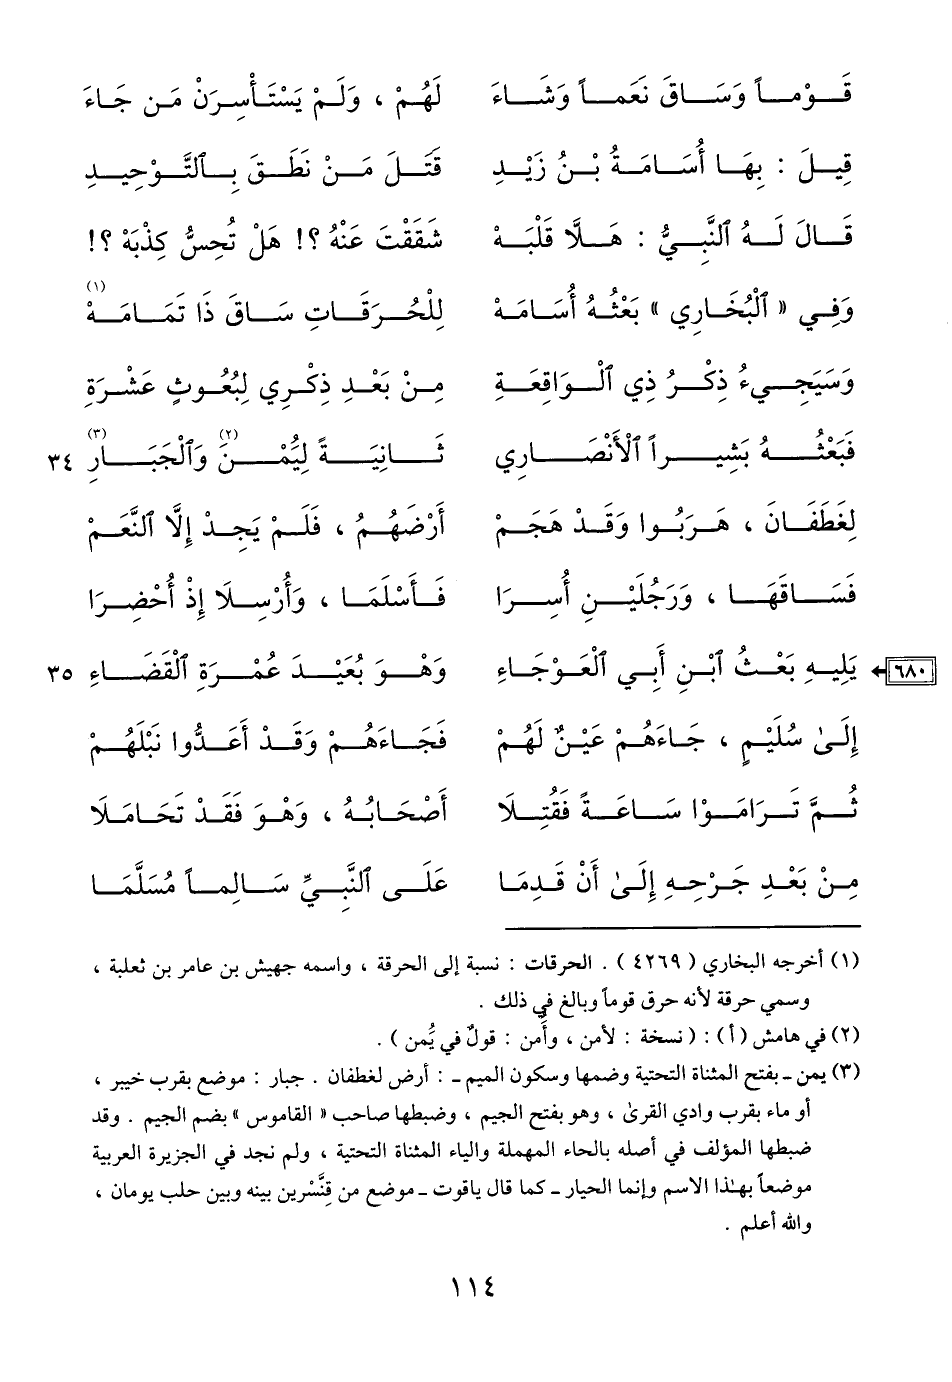 قَوْماً وَسَاقَ نَعَماً وَشَاءَ لَهُمْ ، وَلَمْ يَسْتَأْسِرَنْ مَن جَاءَ
قِيلَ : بِهَا أُسَامَةُ بْنُ زَيْدِ قَتَلَ مَنْ نَطَقَ بِٱلتَّوْحِيدِ
قَالَ لَهُ ٱلنَّبِيُّ : هَلَّا قَلْبَهْ شَقَقْتَ عَنْهُ ؟! هَلْ تُحِسُّ كِذْبَهْ ؟!
وَفِي « ٱلْبُخَارِي » بَعْثُهُ أُسَامَهْ لِلْحُرَقَاتِ سَاقَ ذَا تَمَامَهْ (١)
وَسَيَجِيءُ ذِكْرُ ذِي ٱلْوَاقِعَةِ مِنْ بَعْدِ ذِكْرِي لِبُعُوثٍ عَشْرَةِ
فَبَعْثُهُ بَشِيراً ٱلْأَنْصَارِي ثَانِيَةً لِيُمْنَ (٢) وَٱلْجَبَارِ (٣) ٣٤
لِغَطَفَانَ ، هَرَبُوا وَقَدْ هَجَمْ أَرْضَهُمُ ، فَلَمْ يَجِدْ إِلَّا ٱلنَّعَمْ
فَسَاقَهَا ، وَرَجُلَيْنِ أُسِرَا فَأَسْلَمَا ، وَأُرْسِلَا إِذْ أُحْضِرَا
٦٨٠ يَلِيهِ بَعْثُ ٱبْنِ أَبِي ٱلْعَوْجَاءِ وَهْوَ بُعَيْدَ عُمْرَةِ ٱلْقَضَاءِ ٣٥
إِلَىٰ سُلَيْمٍ ، جَاءَهُمْ عَيْنٌ لَهُمْ فَجَاءَهُمْ وَقَدْ أَعَدُّوا نَبْلَهُمْ
ثُمَّ تَرَامَوْا سَاعَةً فَقُتِلَا أَصْحَابُهُ ، وَهْوَ فَقَدْ تَحَامَلَا
مِنْ بَعْدِ جَرْحِهِ إِلَىٰ أَنْ قَدِمَا عَلَى ٱلنَّبِيِّ سَالِماً مُسَلَّمَا
(١) أخرجه البخاري ( ٤٢٦٩ ) . الحرقات : نسبة إلى الحرقة ، واسمه جهيش بن عامر بن ثعلبة ،
وسمي حرقة لأنه حرق قوماً وبالغ في ذلك .
(٢) في هامش (أ) : ( نسخة : لأمن ، وأَمن : قولٌ في يُمن ) .
(٣) يمن ـ بفتح المثناة التحتية وضمها وسكون الميم ـ : أرض لغطفان . جبار : موضع بقرب خيبر ،
أو ماء بقرب وادي القرىٰ ، وهو بفتح الجيم ، وضبطها صاحب « القاموس » بضم الجيم . وقد
ضبطها المؤلف في أصله بالحاء المهملة والياء المثناة التحتية ، ولم نجد في الجزيرة العربية
موضعاً بهٰذا الاسم وإنما الحيار ـ كما قال ياقوت ـ موضع من قِنَّسْرين بينه وبين حلب يومان ،
والله أعلم .
١١٤